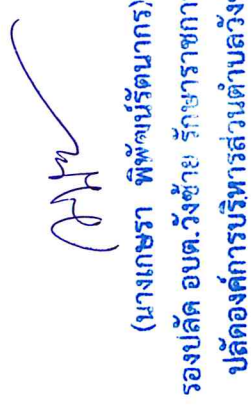 (นางเกษรา พิพัฒน์รัตนากร)
รองปลัด อบต.วังซ้าย รักษาราชกา
ปลัดองค์การบริหารส่วนตำบลวัง